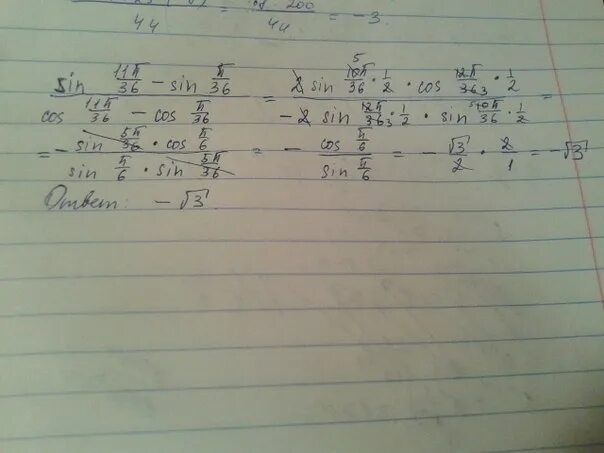 44 = 200/44 = -3
(sin 11π/36 - sin π/36)/(cos 11π/36 - cos π/36) = (2 sin 10π/36 · 1/2 · cos 12π/36 · 1/2)/(-2 sin 12π/36 · 1/2 · sin 10π/36 · 1/2) =
= - (sin 5π/36 · cos π/6)/(sin π/6 · sin 5π/36) = - (cos π/6)/(sin π/6) = - √3/2 · 2/1 = -√3
Ответ: - √3